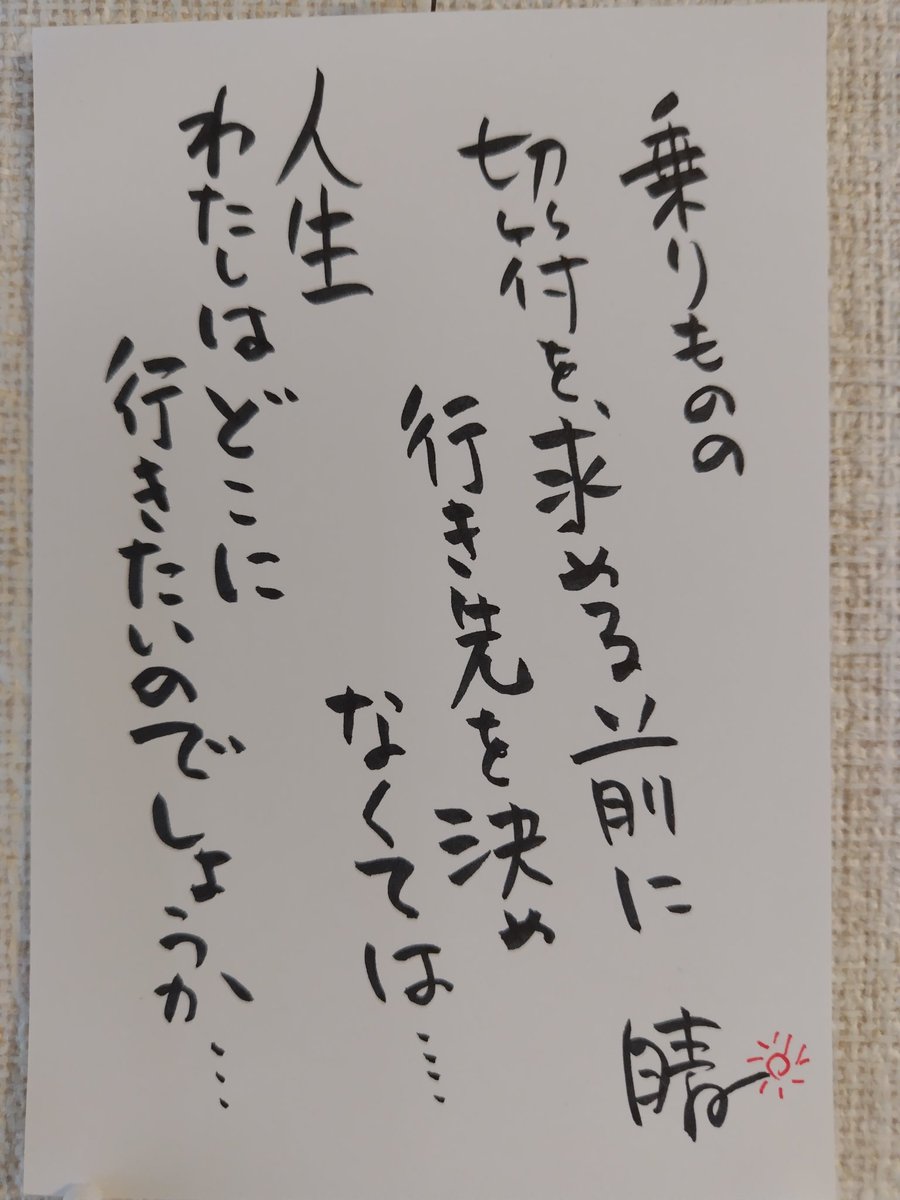 乗りものの
切符を求める前に
行き先を決め
なくては…
人生
わたしはどこに
行きたいのでしょうか…
晴